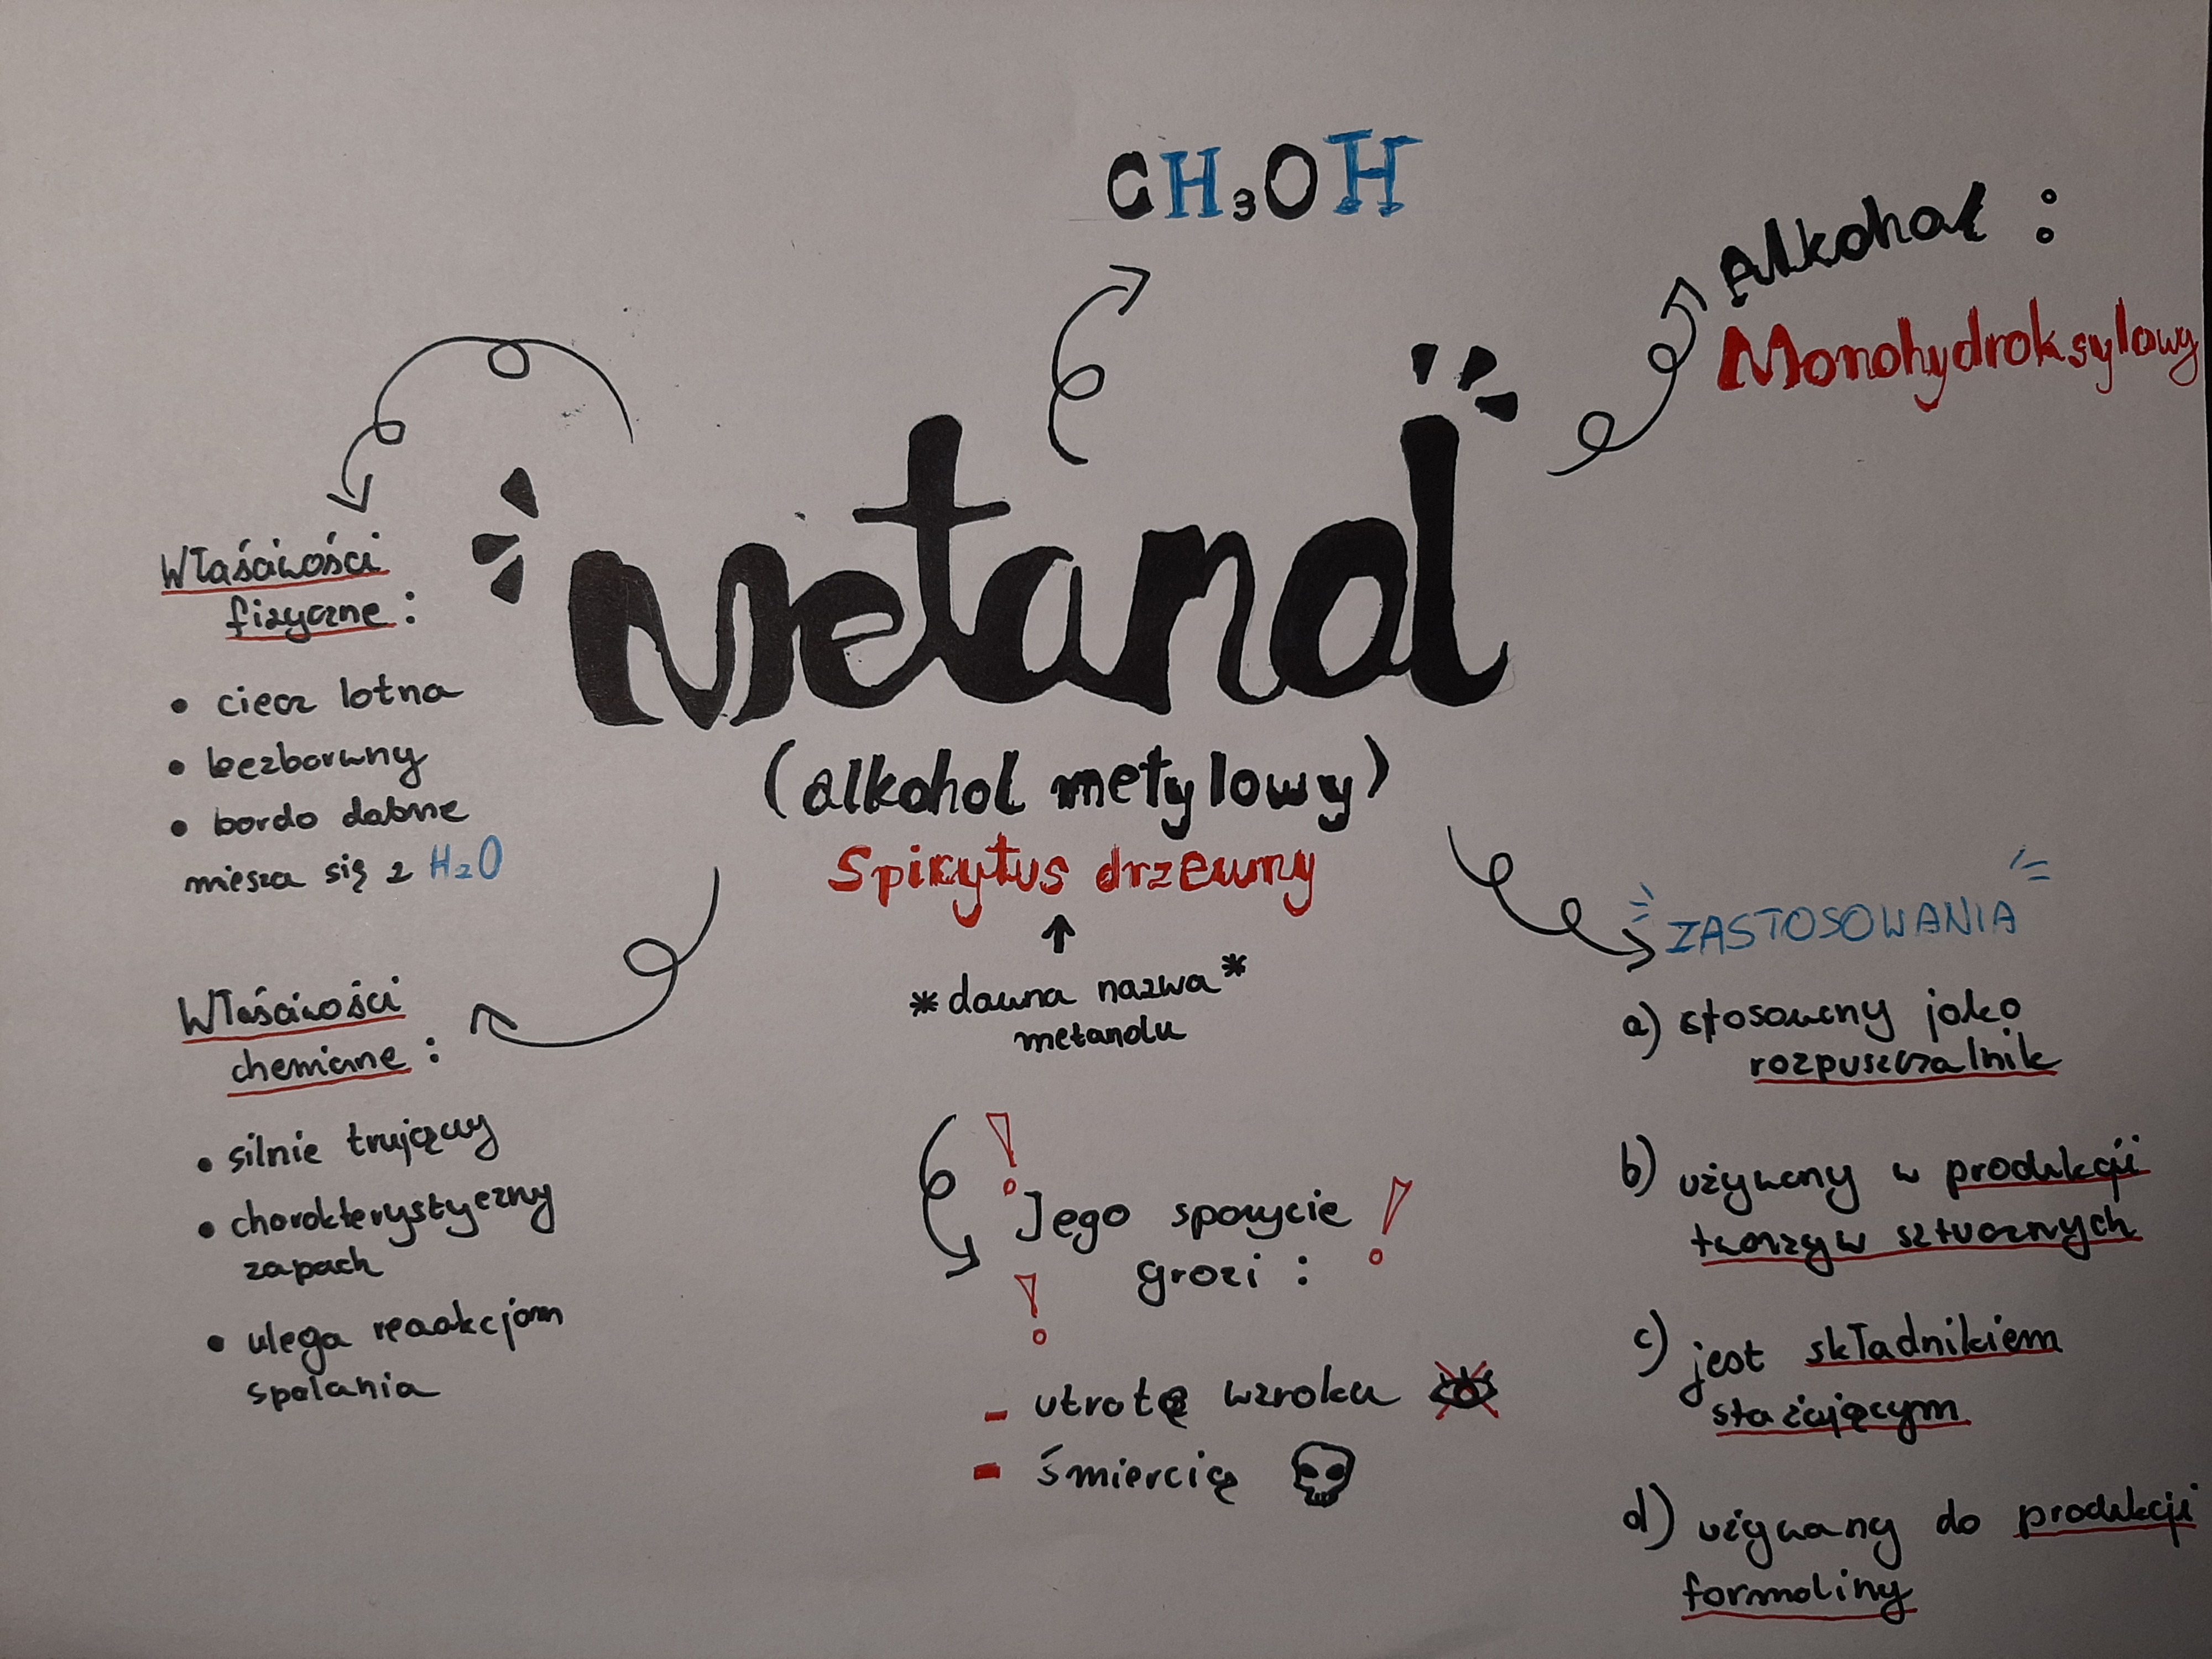 CH₃OH
Alkohol :
Monohydroksylowy
Metanol
(alkohol metylowy)
Spirytus drzewny
*dawna nazwa*
metanolu
Właściwości
fizyczne :
• ciecz lotna
• bezbarwny
• bardo dobrze
miesza się z H₂O
Właściwości
chemiczne :
• silnie trujący
• charakterystyczny
zapach
• ulega reaakcjom
spalania
! Jego spożycie !
grozi :
!
- utratę wzroku
- śmiercią
ZASTOSOWANIA
a) stosowany jako
rozpuszczalnik
b) używany w produkcji
tworzyw sztucznych
c) jest składnikiem
starzającym
d) używany do produkcji
formaliny